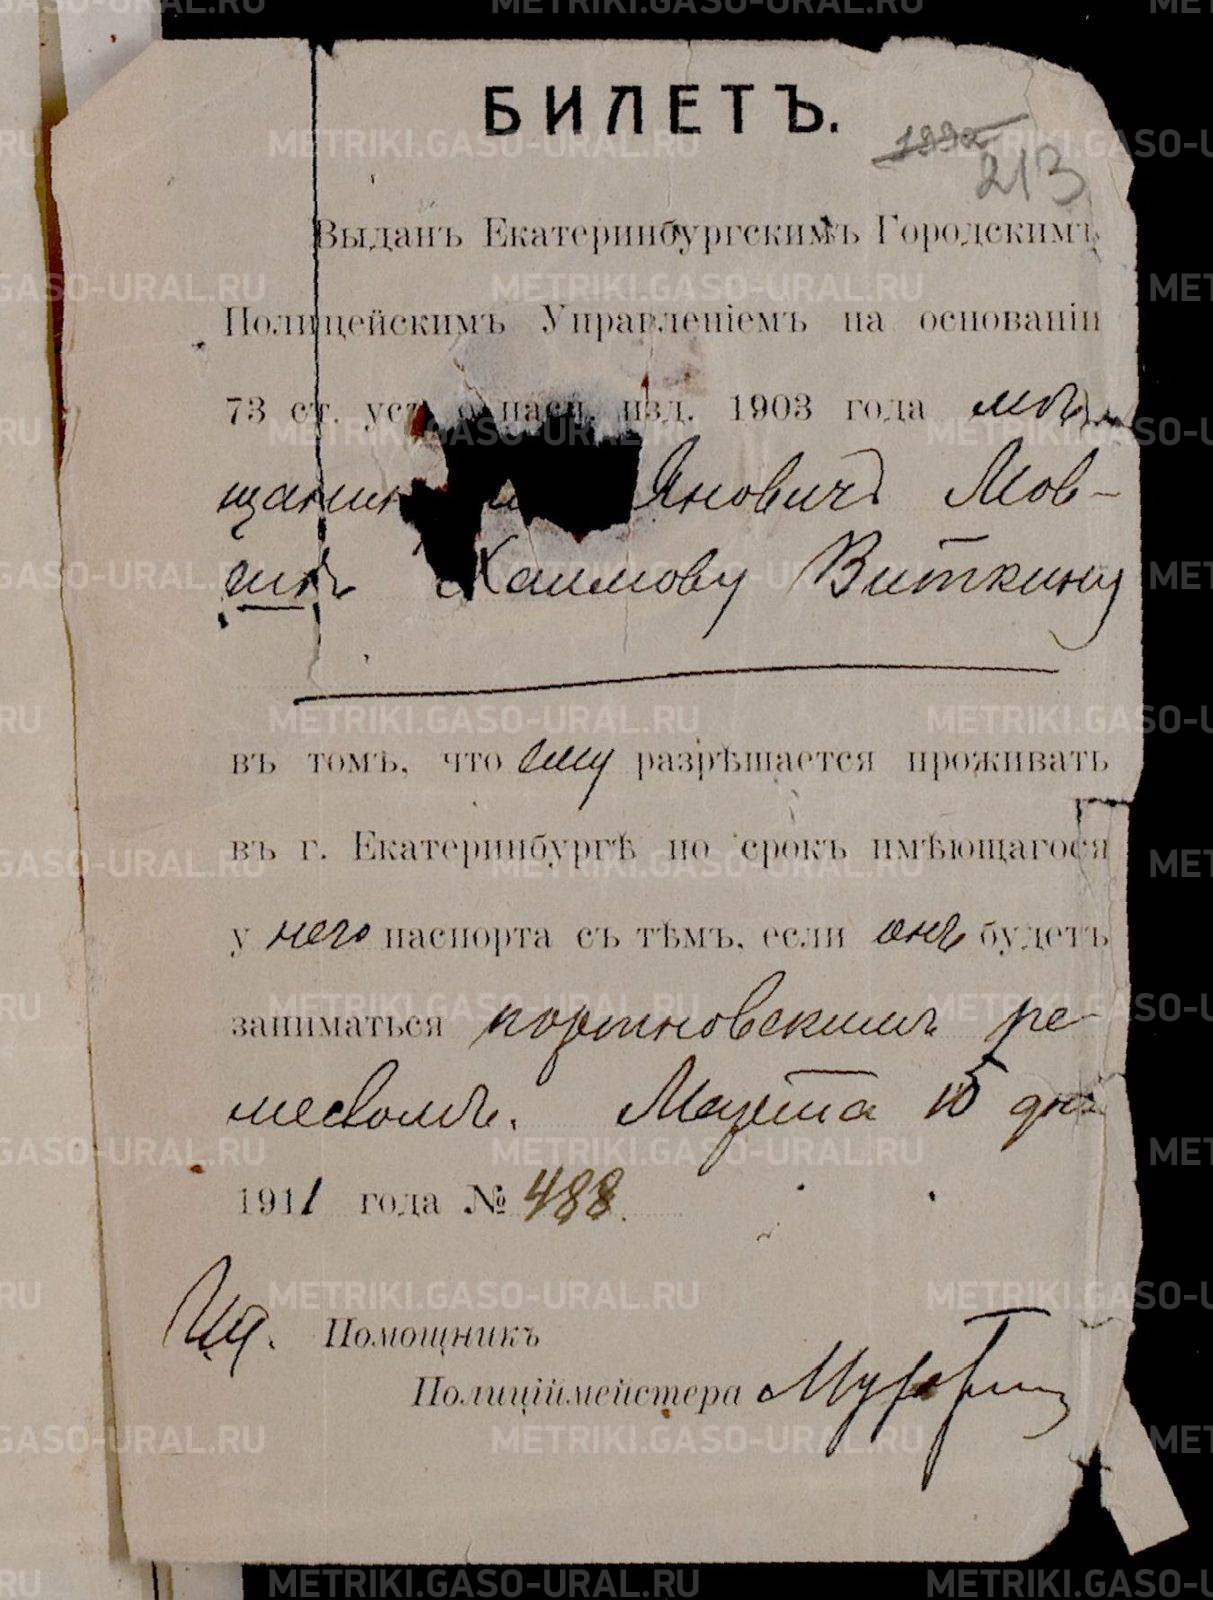 БИЛЕТЪ.
213
Выданъ Екатеринбургскимъ Городскимъ
Полицейскимъ Управленіемъ на основаніи
73 ст. уст. о пасп. изд. 1903 года мѣ-
щанин Мов-
шѣ Хаимову Виткину
въ томъ, что ему разрѣшается проживать
въ г. Екатеринбургѣ по срокъ имѣющагося
у него паспорта съ тѣмъ, если онъ будетъ
заниматься портновскимъ ре-
месломъ. Марта 15 дня
1911 года № 488.
И.д. Помощникъ
Полиціймейстера
METRIKI.GASO-URAL.RU